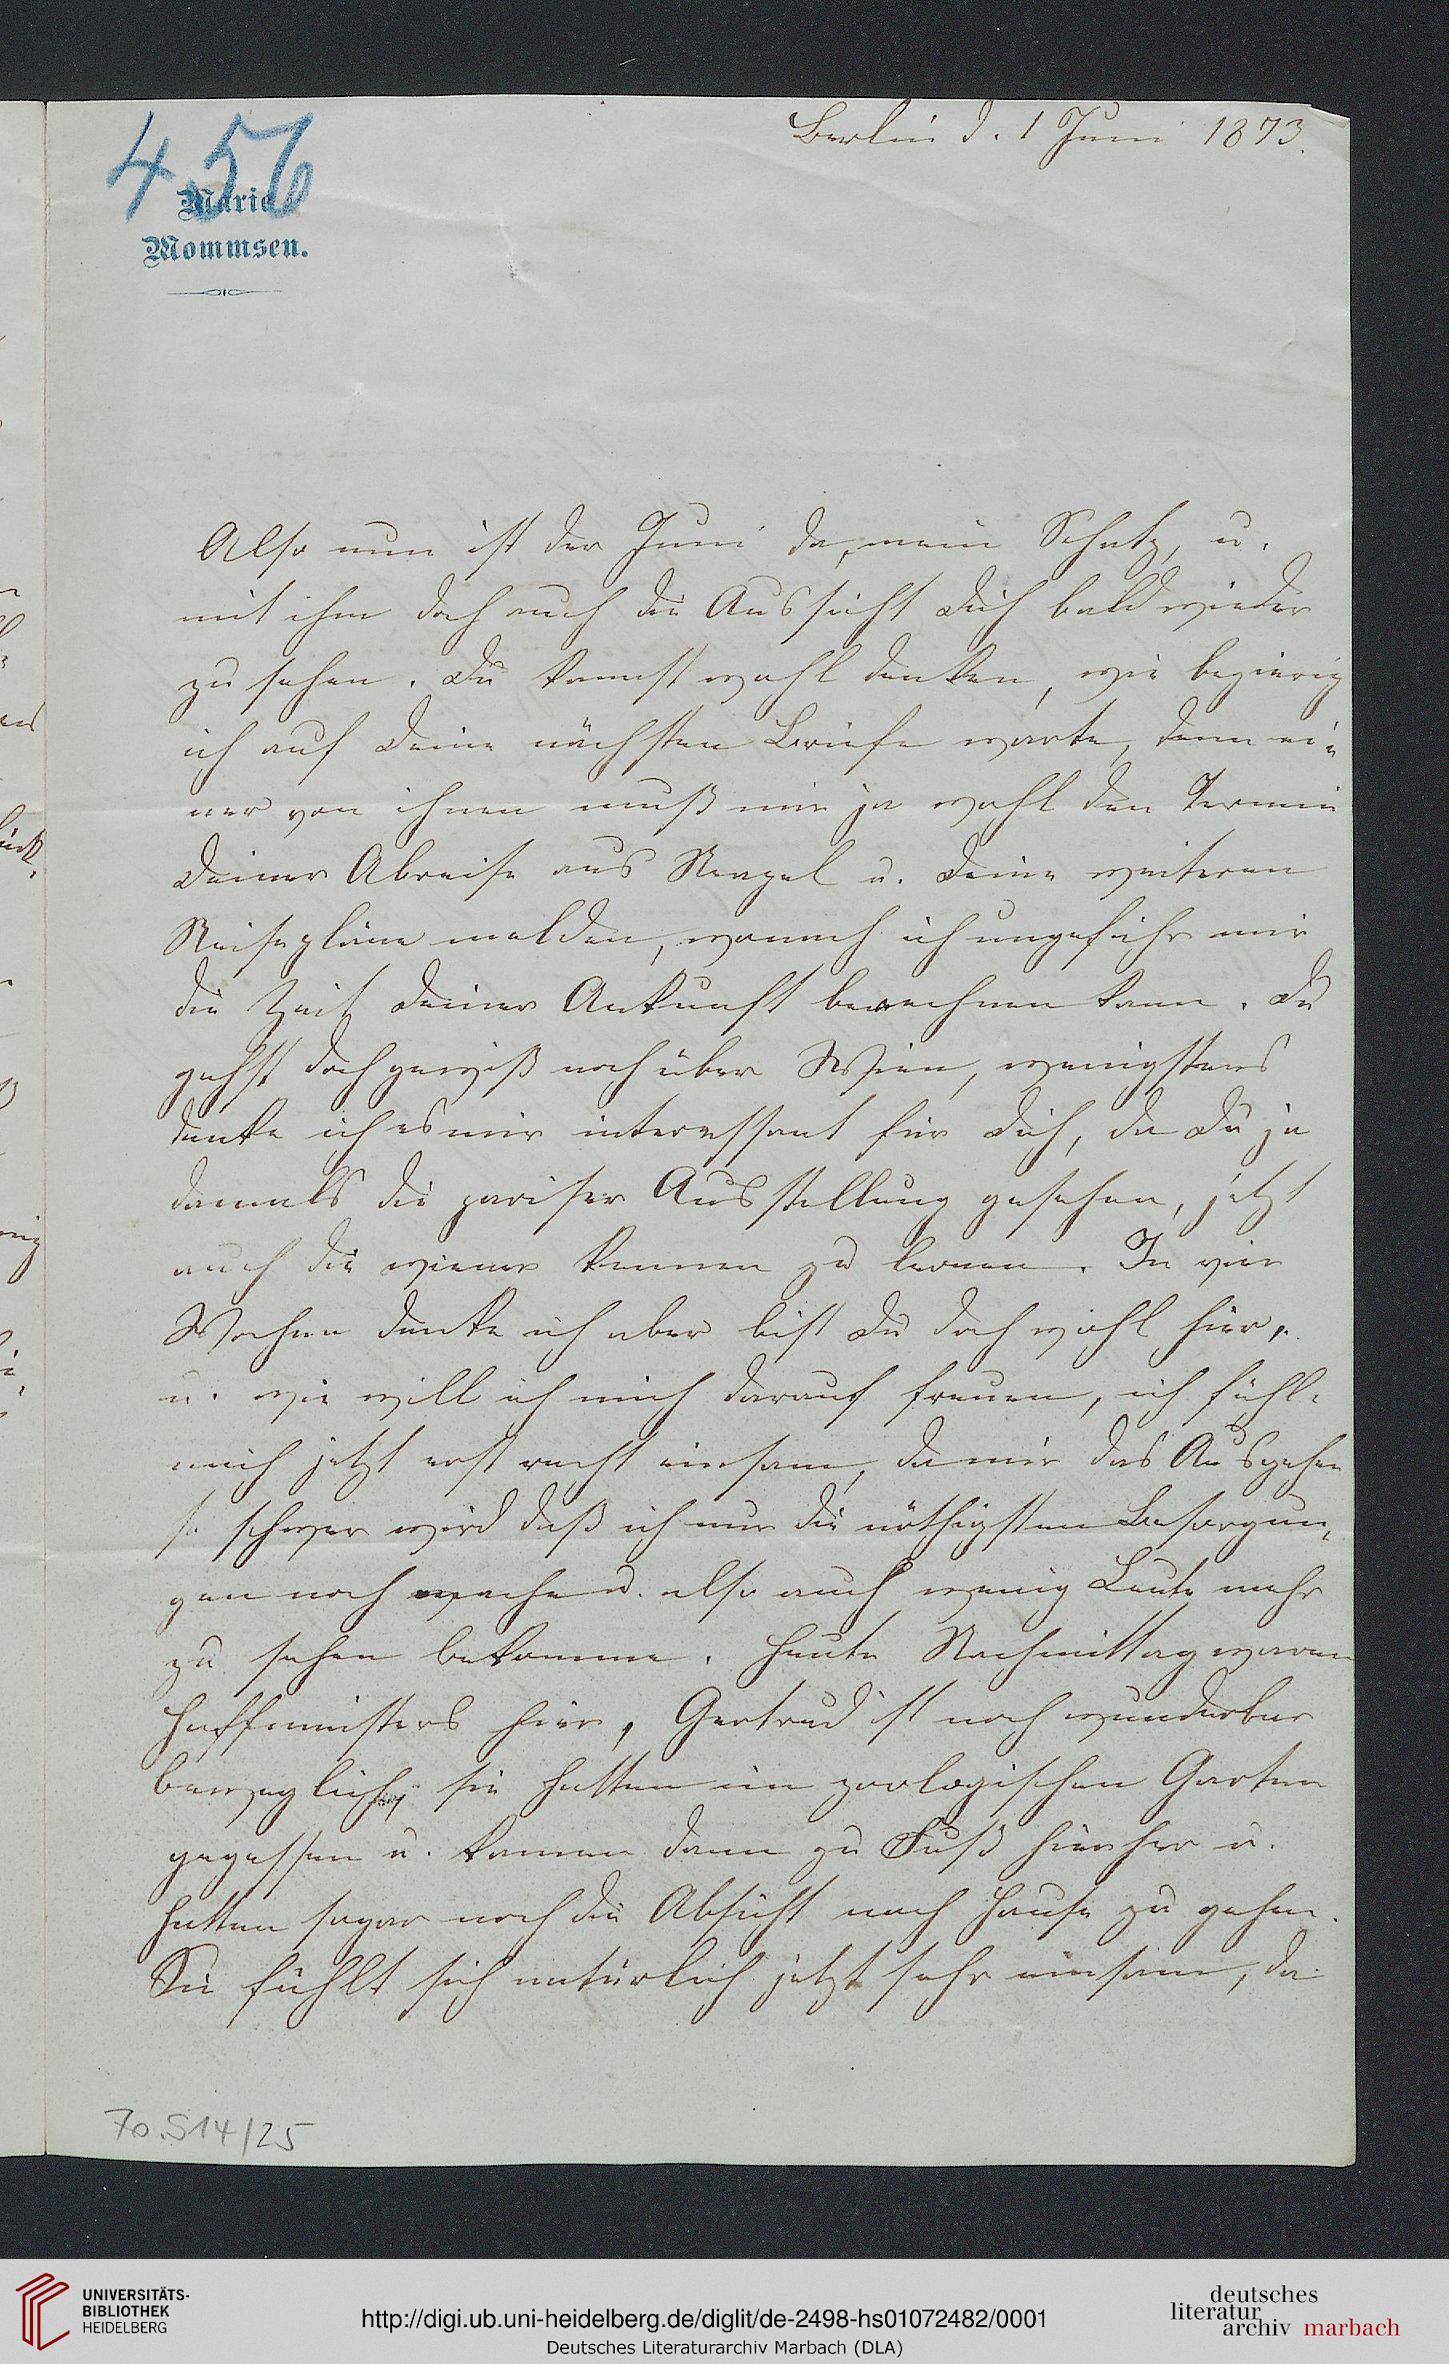 Berlin d. 1 Juni 1873.
456
Marie
Mommsen.
Also nun ist der Juni da, mein Schatz, u.
mit ihm doch auch die Aussicht Dich bald wieder
zu sehen. Du kannst wohl denken, wie begierig
ich auf Deine nächsten Briefe warte, denn ei-
ner von ihnen muß mir ja wohl den Termin
Deiner Abreise aus Neapel u. Deine weiteren
Reisepläne melden, wonach ich ungefähr mir
die Zeit Deiner Ankunft berechnen kann. Du
gehst doch gewiß noch über Wien, wenigstens
denke ich es mir interessant für Dich, da Du ja
damals die pariser Ausstellung gesehen, jetzt
auch die wiener kennen zu lernen. In vier
Wochen denke ich aber bist Du doch wohl hier,
u. wie will ich mich darauf freuen, ich fühle
mich jetzt erst recht einsam, da mir das Ausgehen
so schwer wird daß ich nur die nöthigsten Besorgun-
gen noch mache u. also auch wenig Leute mehr
zu sehen bekomme. Heute Nachmittag waren
Hoffmeisters hier, Gertrud ist noch wunderbar
beweglich, sie hatten im zoologischen Garten
gegessen u. kamen dann zu Fuß hierher u.
hatten sogar noch die Absicht nach Hause zu gehen.
Sie fühlt sich natürlich jetzt sehr einsam, da
70.514/25
UNIVERSITÄTS-
BIBLIOTHEK
HEIDELBERG
http://digi.ub.uni-heidelberg.de/diglit/de-2498-hs01072482/0001
Deutsches Literaturarchiv Marbach (DLA)
deutsches
literatur
archiv marbach